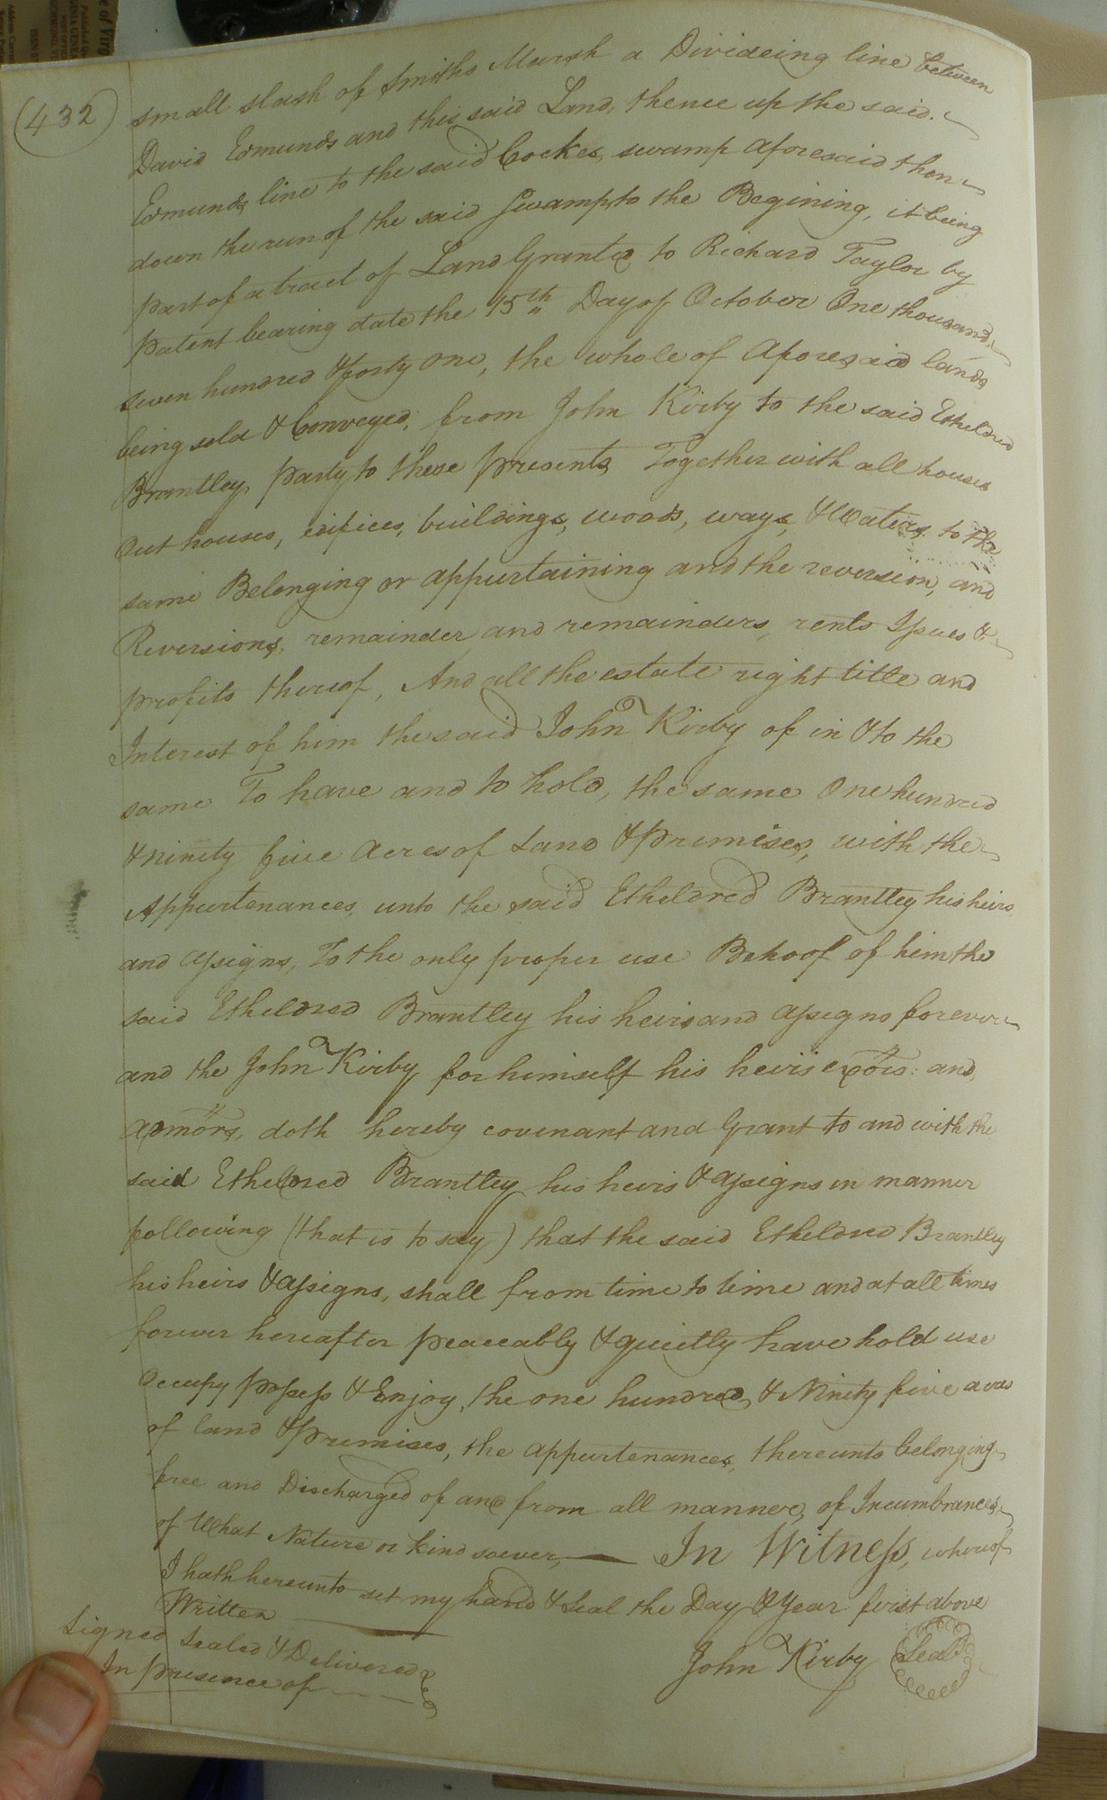 (432)
small slash of Smiths Marsh a Divideing line between
David Edmunds and this said Land, thence up the said
Edmunds line to the said Cockes, swamp aforesaid then
down the run of the said Swamp, to the Begining, it being
part of a tract of Land Granted to Richard Taylor by
patent bearing date the 15th Day of October One thousand,
seven hundred & forty one, the whole of Aforesaid lands
being sold & Conveyed, from John Kirby to the said Etheldred
Brantley, party to these presents Together with all houses
Out houses, edifices, buildings, woods, ways, & Waters, to the
same Belonging or appurtaining and the reversion, and
Reversions, remainder, and remainders, rents Issues &
profits thereof, And all the estate right title and
Interest of him the said John Kirby of in & to the
same To have and to hold, the same One hundred
& ninety five Acres of Land & premises, with the
Appurtenances, unto the said Etheldred Brantley his heirs
and assigns, To the only proper use Behoof of him the
said Etheldred Brantley his heirs and assigns forever
and the John Kirby for himself his heirs exors: and,
admors, doth hereby covenant and Grant to and with the
said Etheldred Brantley his heirs & assigns in manner
following (that is to say) that the said Etheldred Brantley
his heirs & assigns, shall from time to time and at all times
forever hereafter peaceably & quietly have hold use
Occupy possess & Enjoy, the one hundred, & Ninety five acres
of land & premises, the appurtenances, thereunto belonging
free and Discharged of and from all manner, of Incumbrances,
of What Nature or kind soever, — In Witness, whereof
I hath hereunto set my hand & Seal the Day & Year first above
Written
Signed Sealed & Delivered
In presence of
John Kirby Seal